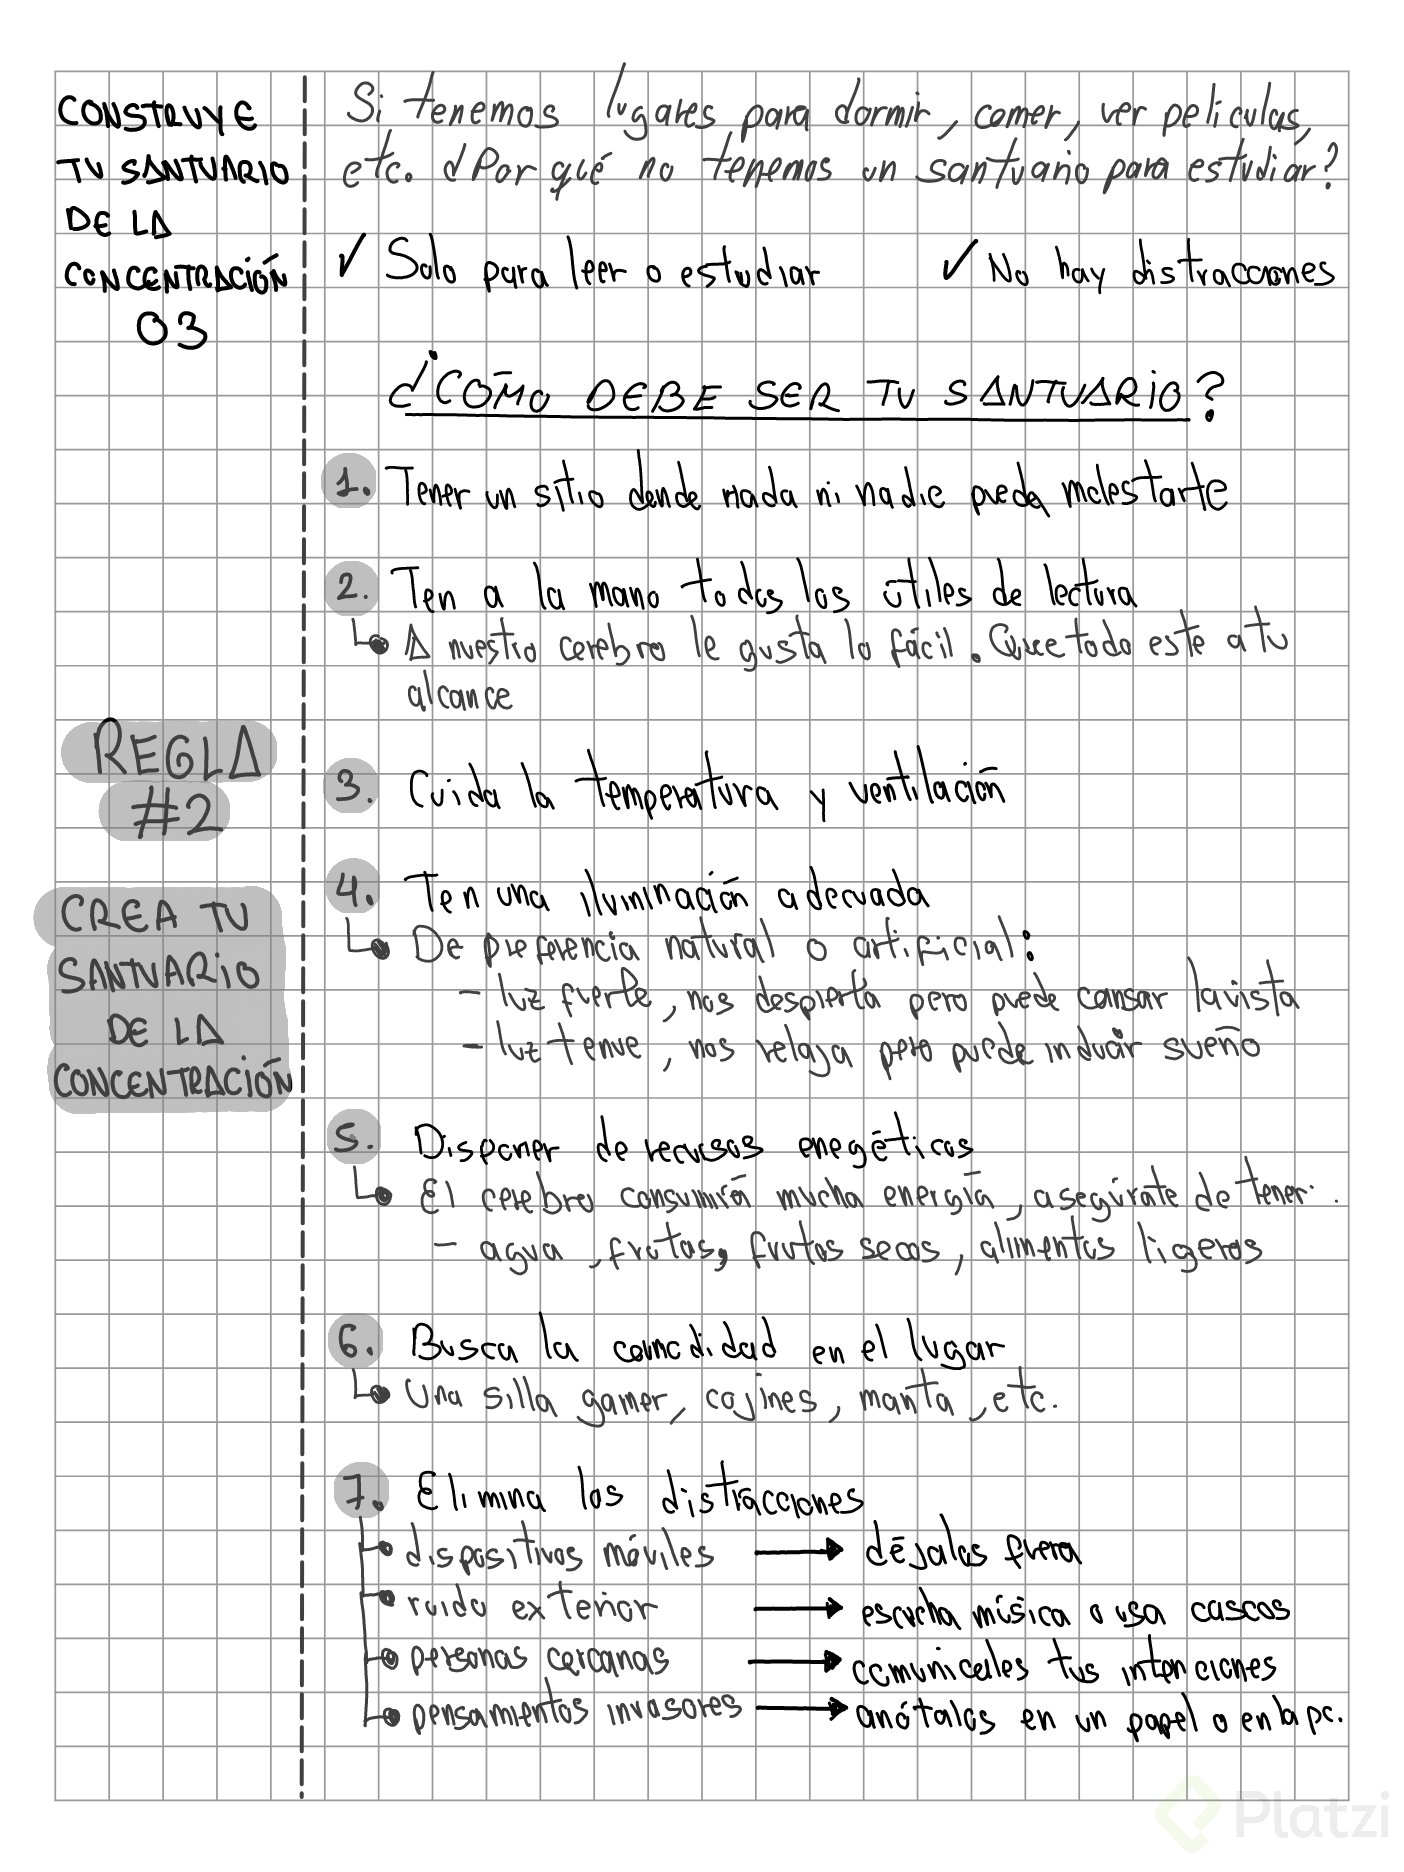 CONSTRUYE
TU SANTUARIO
DE LA
CONCENTRACIÓN
03
Si tenemos lugares para dormir, comer, ver películas,
etc. ¿Por qué no tenemos un santuario para estudiar?
✓ Solo para leer o estudiar ✓ No hay distracciones
¿CÓMO DEBE SER TU SANTUARIO?
1. Tener un sitio donde nada ni nadie pueda molestarte
2. Ten a la mano todos los útiles de lectura
A nuestro cerebro le gusta lo fácil. Que todo este a tu
alcance
REGLA
#2
CREA TU
SANTUARIO
DE LA
CONCENTRACIÓN
3. Cuida la temperatura y ventilación
4. Ten una iluminación adecuada
De preferencia natural o artificial:
- luz fuerte, nos despierta pero puede cansar la vista
- luz tenue, nos relaja pero puede inducir sueño
5. Disponer de recursos enegéticos
El cerebro consumirá mucha energía, asegúrate de tener.
- agua, frutas, frutos secos, alimentos ligeros
6. Busca la comodidad en el lugar
Una silla gamer, cojines, manta, etc.
7. Elimina las distracciones
dispositivos móviles → déjalos fuera
ruido exterior → escucha música o usa cascos
personas cercanas → comunicales tus intenciones
pensamientos invasores → anótalos en un papel o en la pc.
Platzi